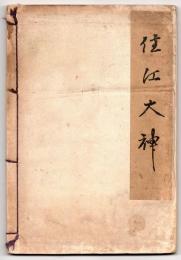 住江大神